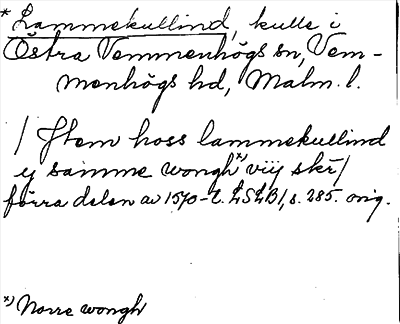 * Lammekullind, kulle i
Östra Vemmenhögs sn, Vem-
menhögs hd, Malm. l.
/ Jtem hoss lammekullind
y samme wongh*) viij skr/
förra delen av 1570-t. LSLB1, s. 285. orig.
*) Norre wongh